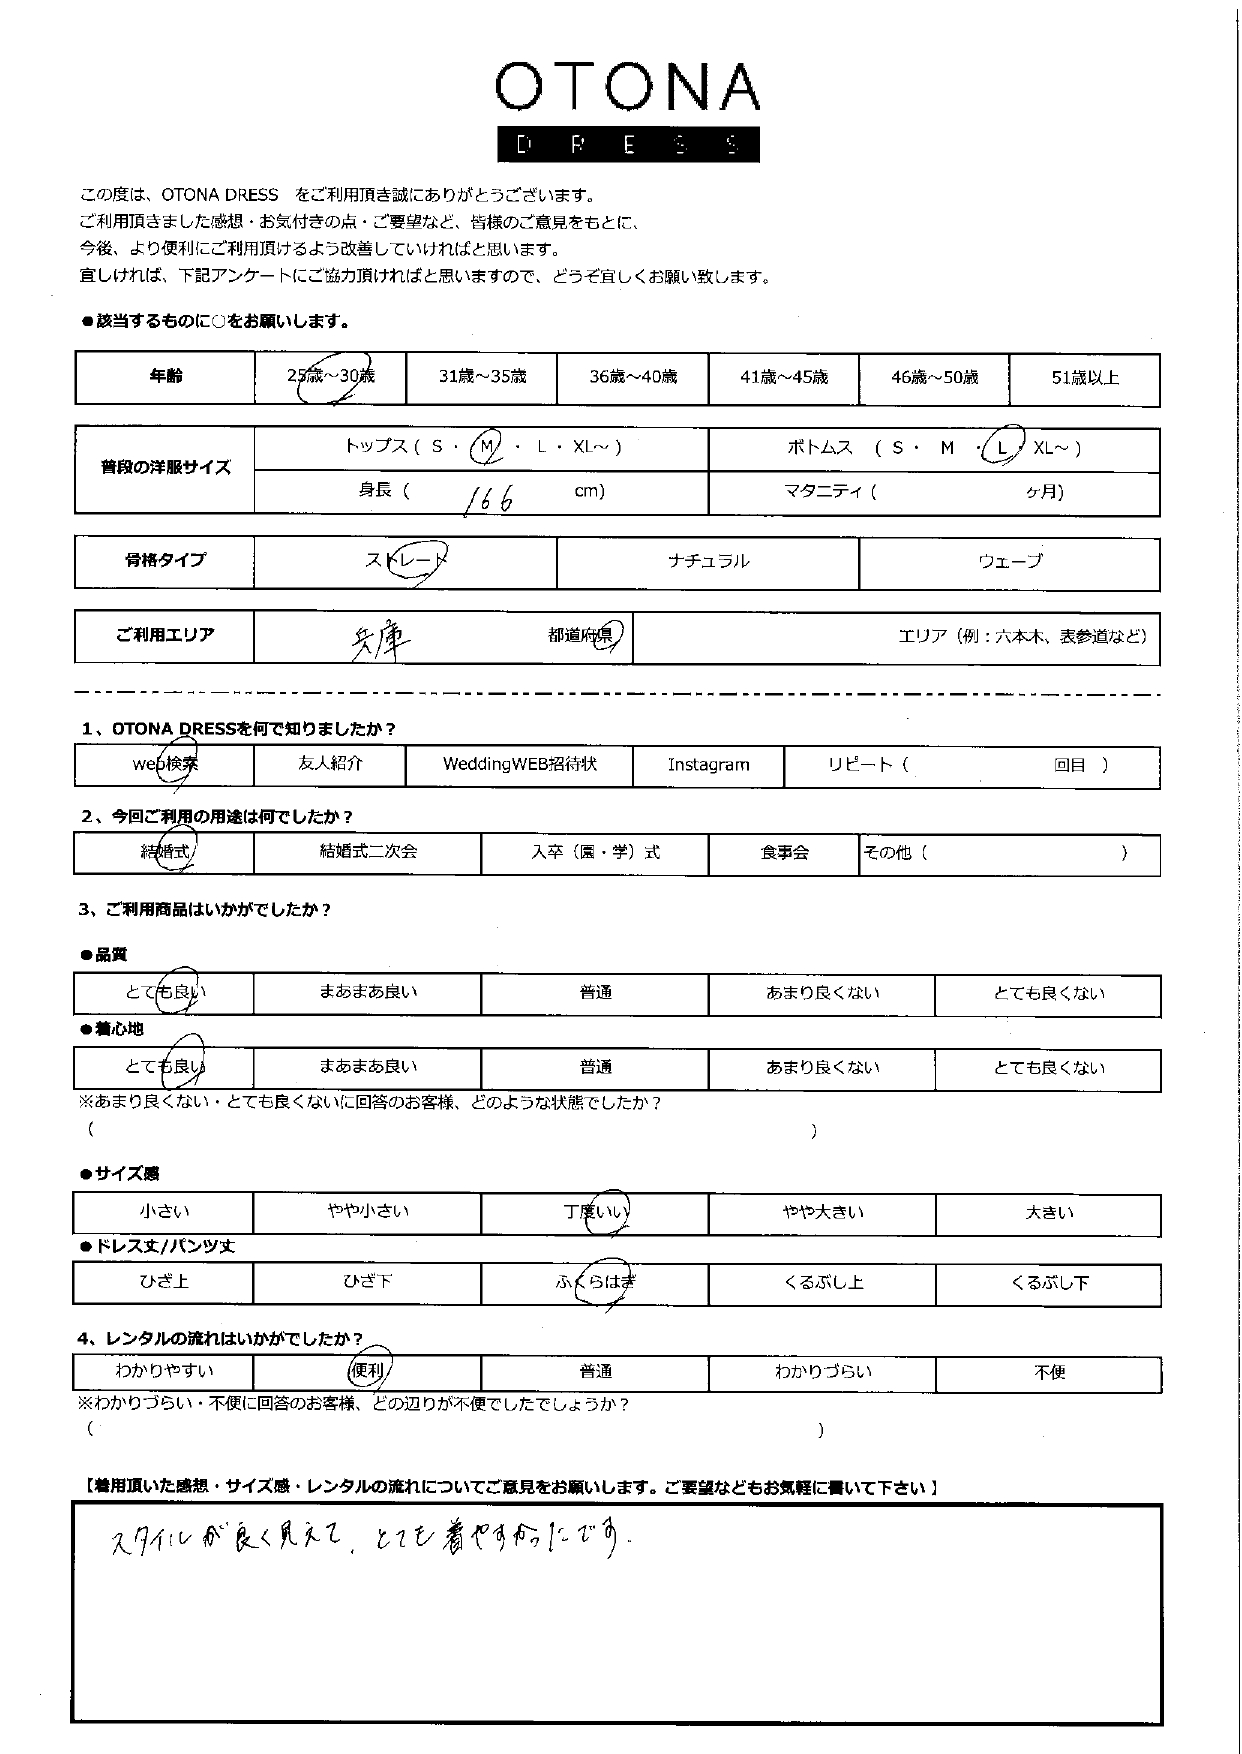 OTONA
DRESS
この度は、OTONA DRESS　をご利用頂き誠にありがとうございます。
ご利用頂きました感想・お気付きの点・ご要望など、皆様のご意見をもとに、
今後、より便利にご利用頂けるよう改善していければと思います。
宜しければ、下記アンケートにご協力頂ければと思いますので、どうぞ宜しくお願い致します。
●該当するものに○をお願いします。
年齢 25歳～30歳 31歳～35歳 36歳～40歳 41歳～45歳 46歳～50歳 51歳以上
普段の洋服サイズ トップス ( S ・ M ・ L ・ XL～ ) ボトムス ( S ・ M ・ L ・ XL～ )
身長 ( 166 cm) マタニティ ( ヶ月)
骨格タイプ ストレート ナチュラル ウェーブ
ご利用エリア 兵庫 都道府県 エリア（例：六本木、表参道など）
1、OTONA DRESSを何で知りましたか？
web検索 友人紹介 WeddingWEB招待状 Instagram リピート ( 回目 )
2、今回ご利用の用途は何でしたか？
結婚式 結婚式二次会 入卒（園・学）式 食事会 その他 ( )
3、ご利用商品はいかがでしたか？
●品質
とても良い まあまあ良い 普通 あまり良くない とても良くない
●着心地
とても良い まあまあ良い 普通 あまり良くない とても良くない
※あまり良くない・とても良くないに回答のお客様、どのような状態でしたか？
( )
●サイズ感
小さい やや小さい 丁度いい やや大きい 大きい
●ドレス丈/パンツ丈
ひざ上 ひざ下 ふくらはぎ くるぶし上 くるぶし下
4、レンタルの流れはいかがでしたか？
わかりやすい 便利 普通 わかりづらい 不便
※わかりづらい・不便に回答のお客様、どの辺りが不便でしたでしょうか？
( )
【着用頂いた感想・サイズ感・レンタルの流れについてご意見をお願いします。ご要望などもお気軽に書いて下さい】
スタイルが良く見えて、とても着やすかったです.